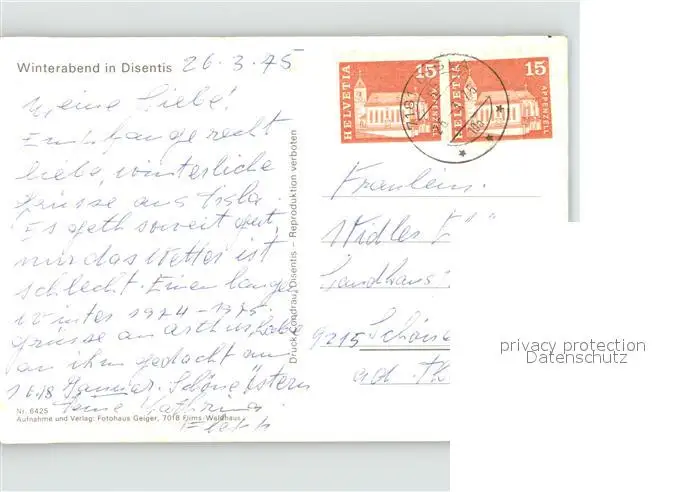 Winterabend in Disentis 26.3.75
Meine Liebe!
Empfange recht
liebe winterliche
Grüsse aus
Es geth soweit gut,
nur das Wetter ist
schlecht. Einen langen
Winter 1974-1975.
Grüsse an Arthur, habe
an ihn gedacht am
Januar. Schöne Ostern
Deine Kathrina
Nr. 6425
Aufnahme und Verlag: Fotohaus Geiger, 7018 Flims-Waldhaus
Druck Condrau, Disentis - Reproduktion verboten
HELVETIA 15 APPENZELL
HELVETIA 15 APPENZELL
Fräulein.
Widler
Landhaus
9215 Schönen
privacy protection
Datenschutz